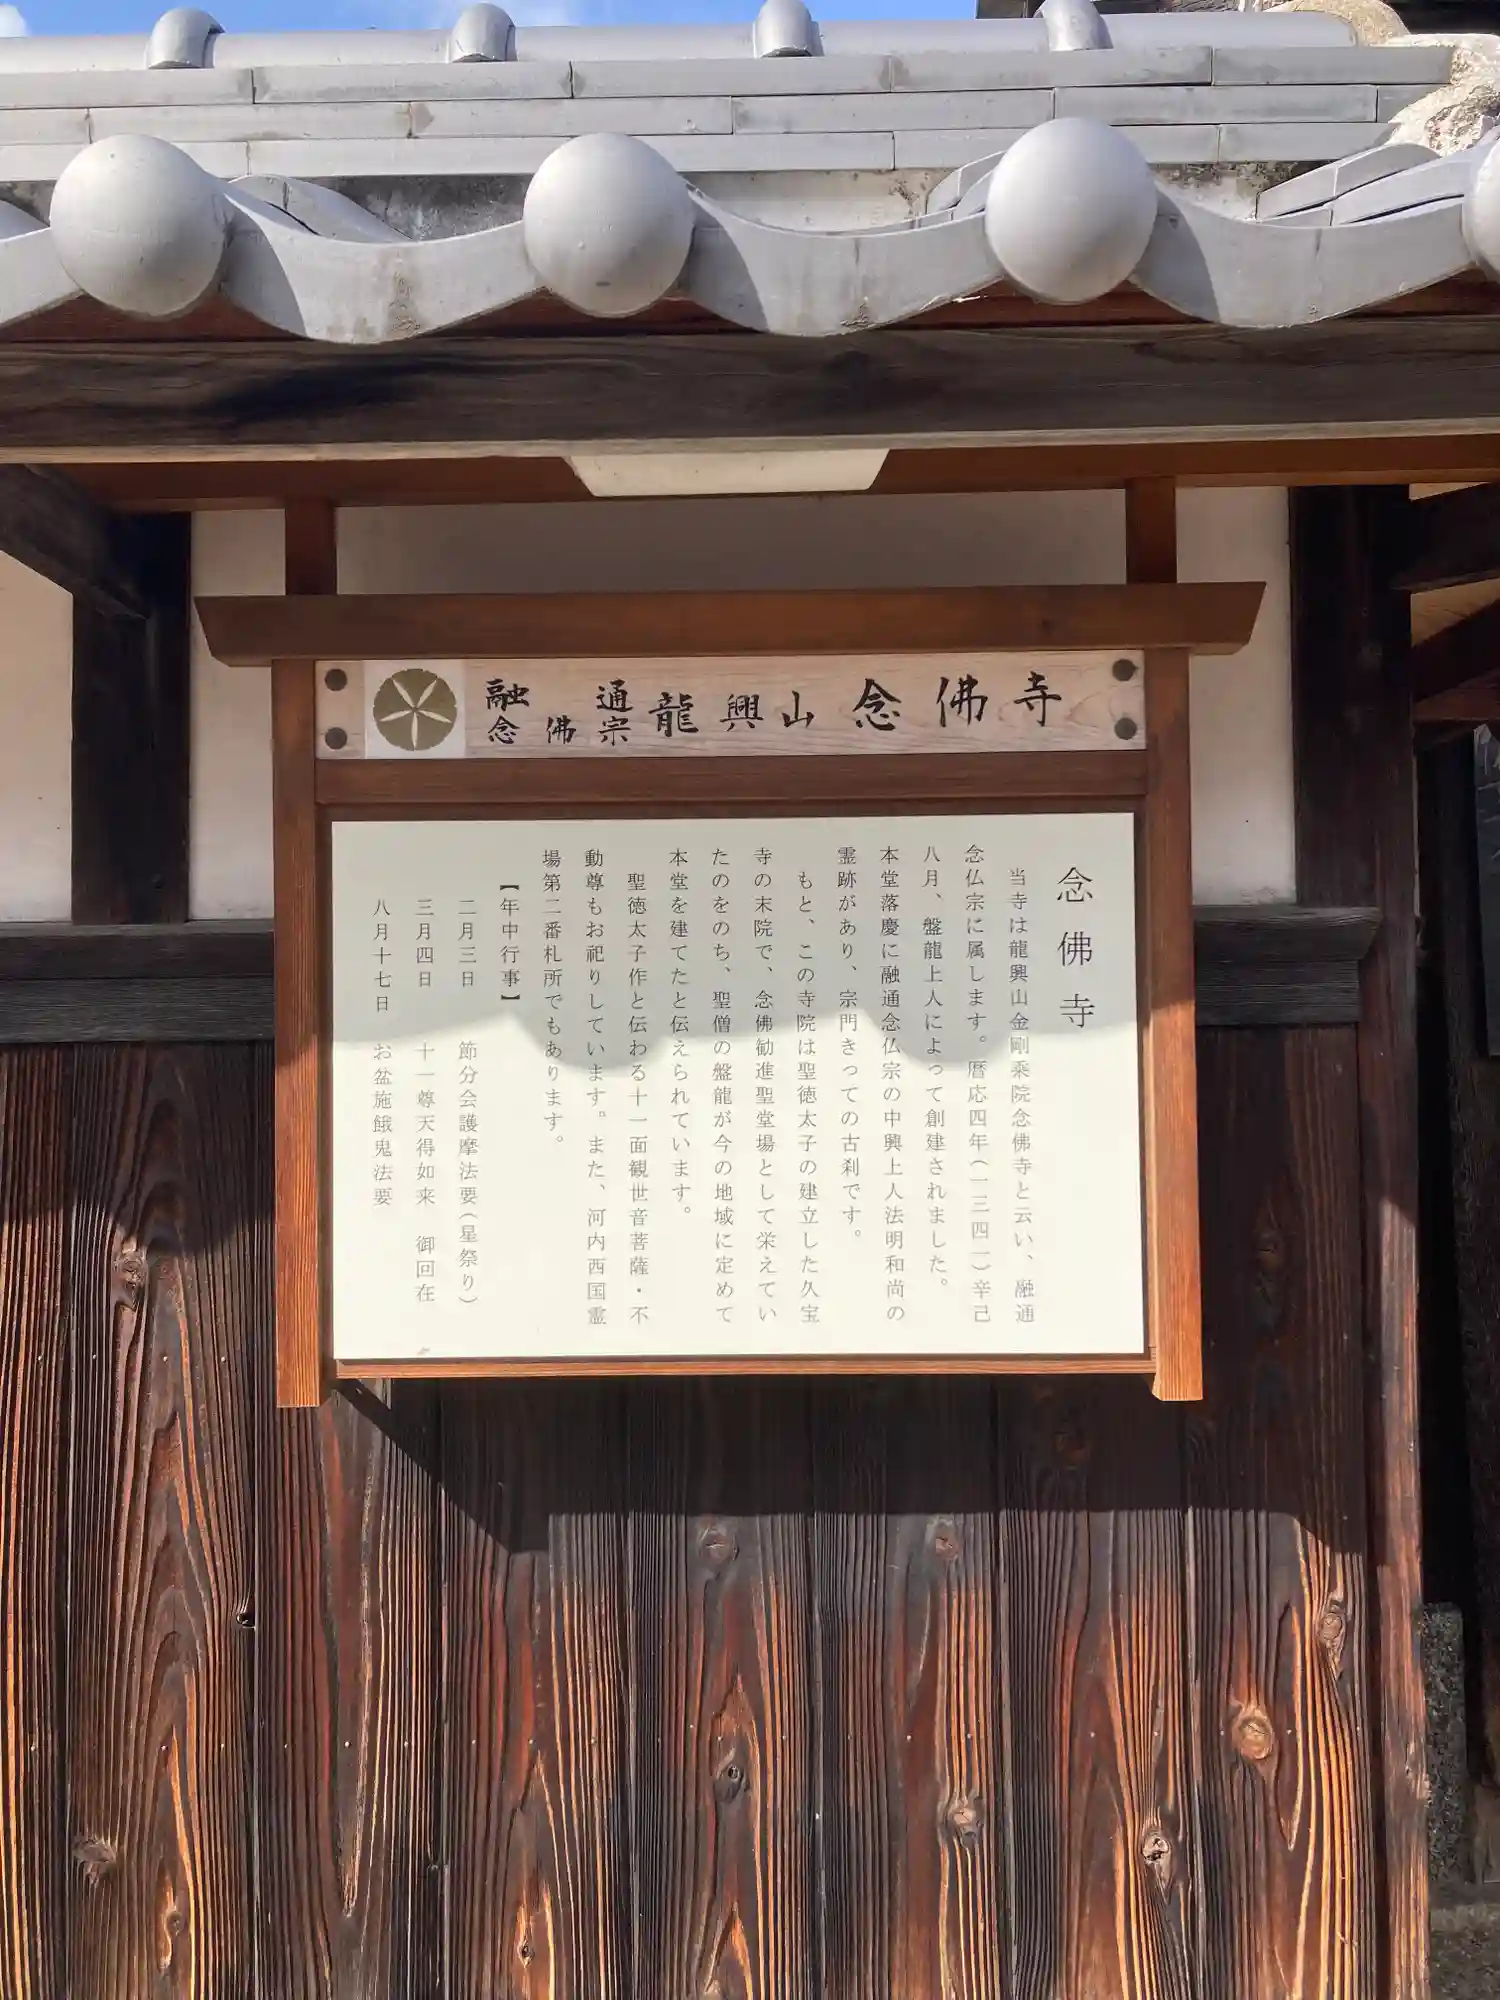 融通
念佛宗
龍興山
念佛寺
念佛寺
当寺は龍興山金剛乗院念佛寺と云い、融通
念仏宗に属します。暦応四年(一三四一)辛己
八月、盤龍上人によって創建されました。
本堂落慶に融通念仏宗の中興上人法明和尚の
霊跡があり、宗門きっての古刹です。
もと、この寺院は聖徳太子の建立した久宝
寺の末院で、念佛勧進聖堂場として栄えてい
たのをのち、聖僧の盤龍が今の地域に定めて
本堂を建てたと伝えられています。
聖徳太子作と伝わる十一面観世音菩薩・不
動尊もお祀りしています。また、河内西国霊
場第二番札所でもあります。
【年中行事】
二月三日 節分会護摩法要(星祭り)
三月四日 十一尊天得如来 御回在
八月十七日 お盆施餓鬼法要